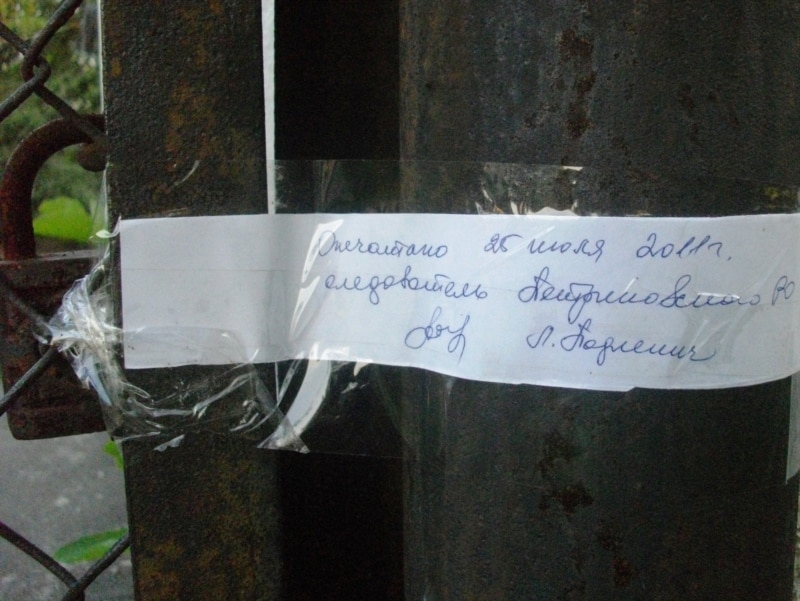 Опечатано 25 июля 2011 г.
следователь Петриковского РО
Л. Подленич